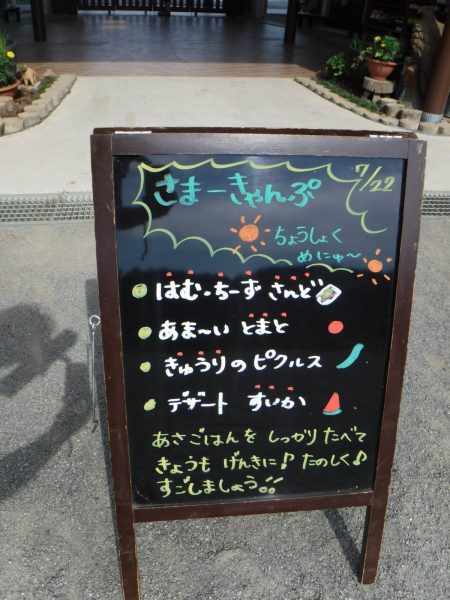 7/22
さまーきゃんぷ
ちょうしょく
めにゅ〜
はむ・ちーずさんど
あま〜い とまと
きゅうりのピクルス
デザート すいか
あさごはんを しっかり たべて
きょうも げんきに♪ たのしく♪
すごしましょう!!